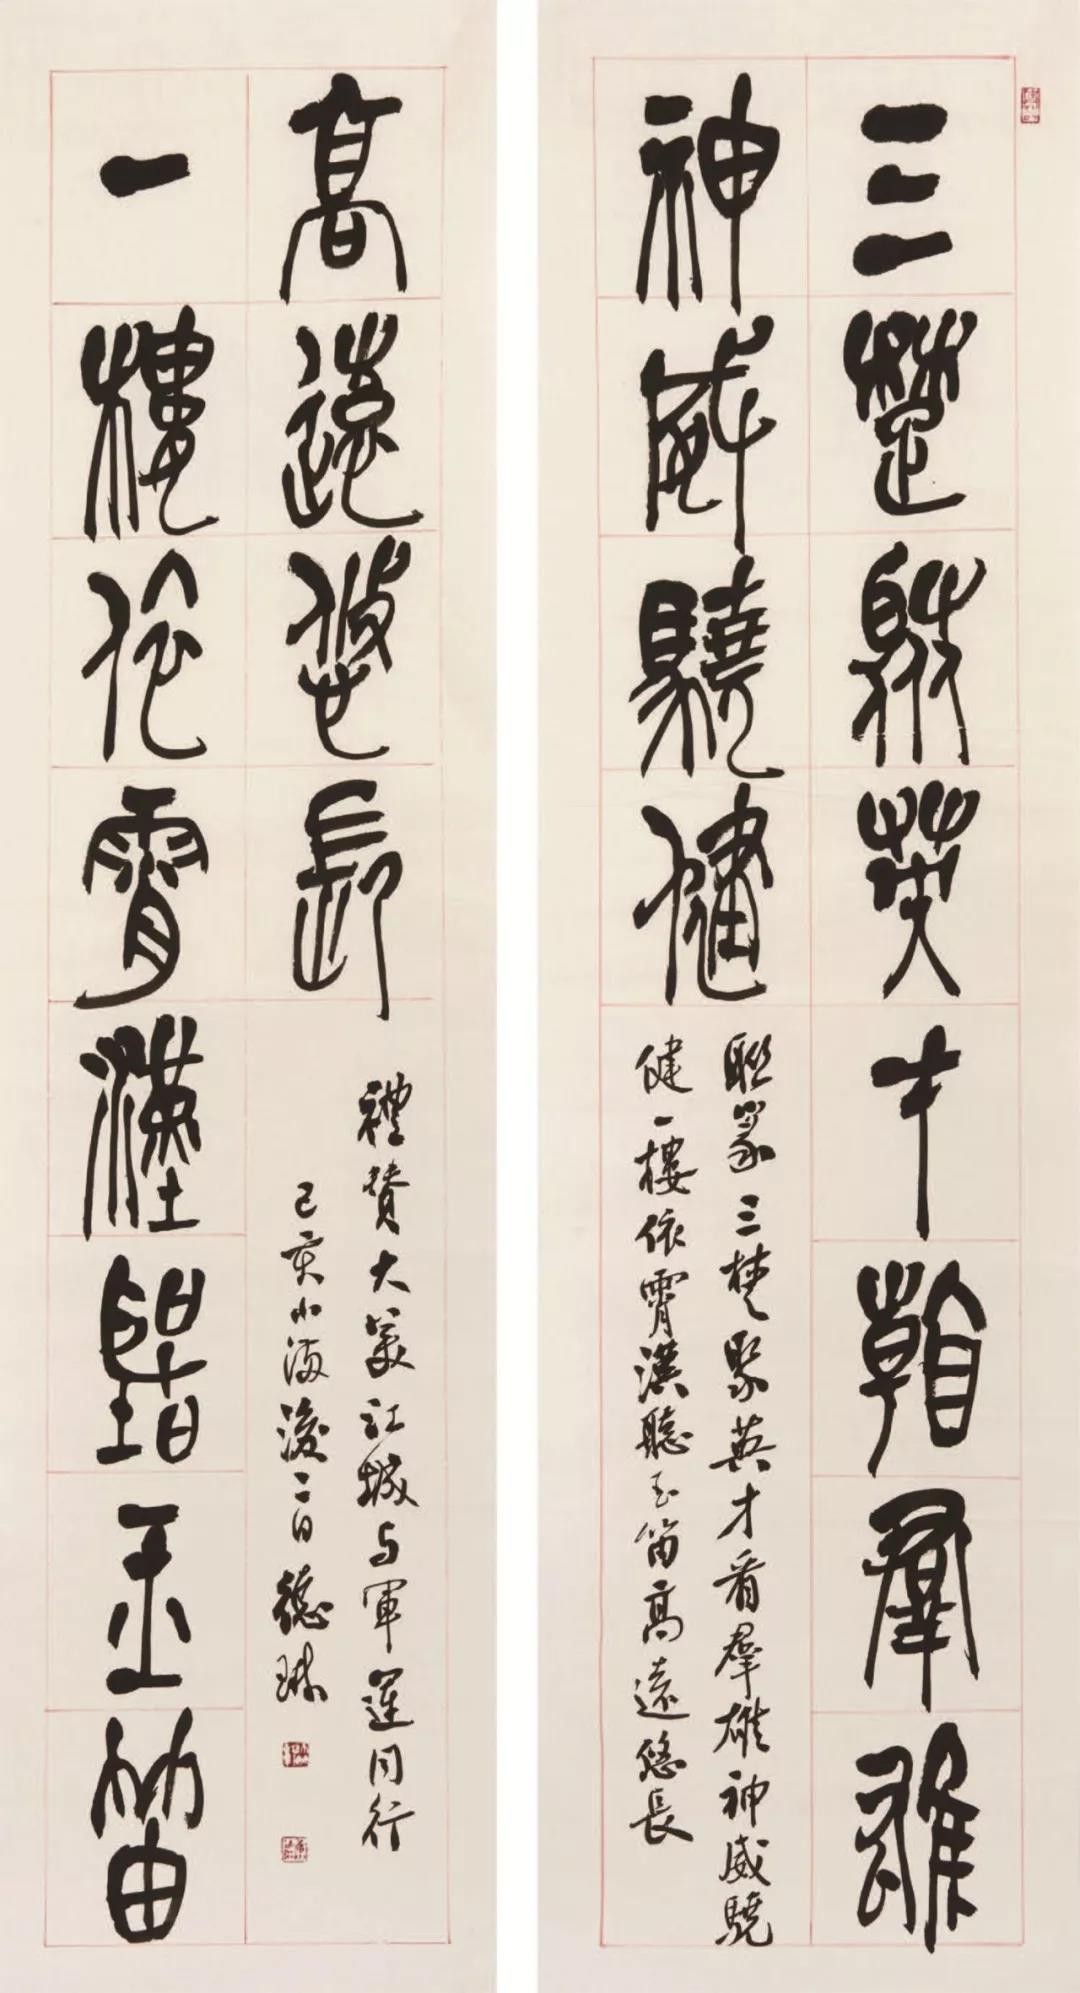 三楚聚英才看羣雄
神威驍健
聯篆三楚聚英才看羣雄神威驍
健一樓依霄漢聽玉笛高遠悠長
一樓依霄漢聽玉笛
高遠悠長
禮贊大美江城与軍運同行
己亥小滿後二日德琳